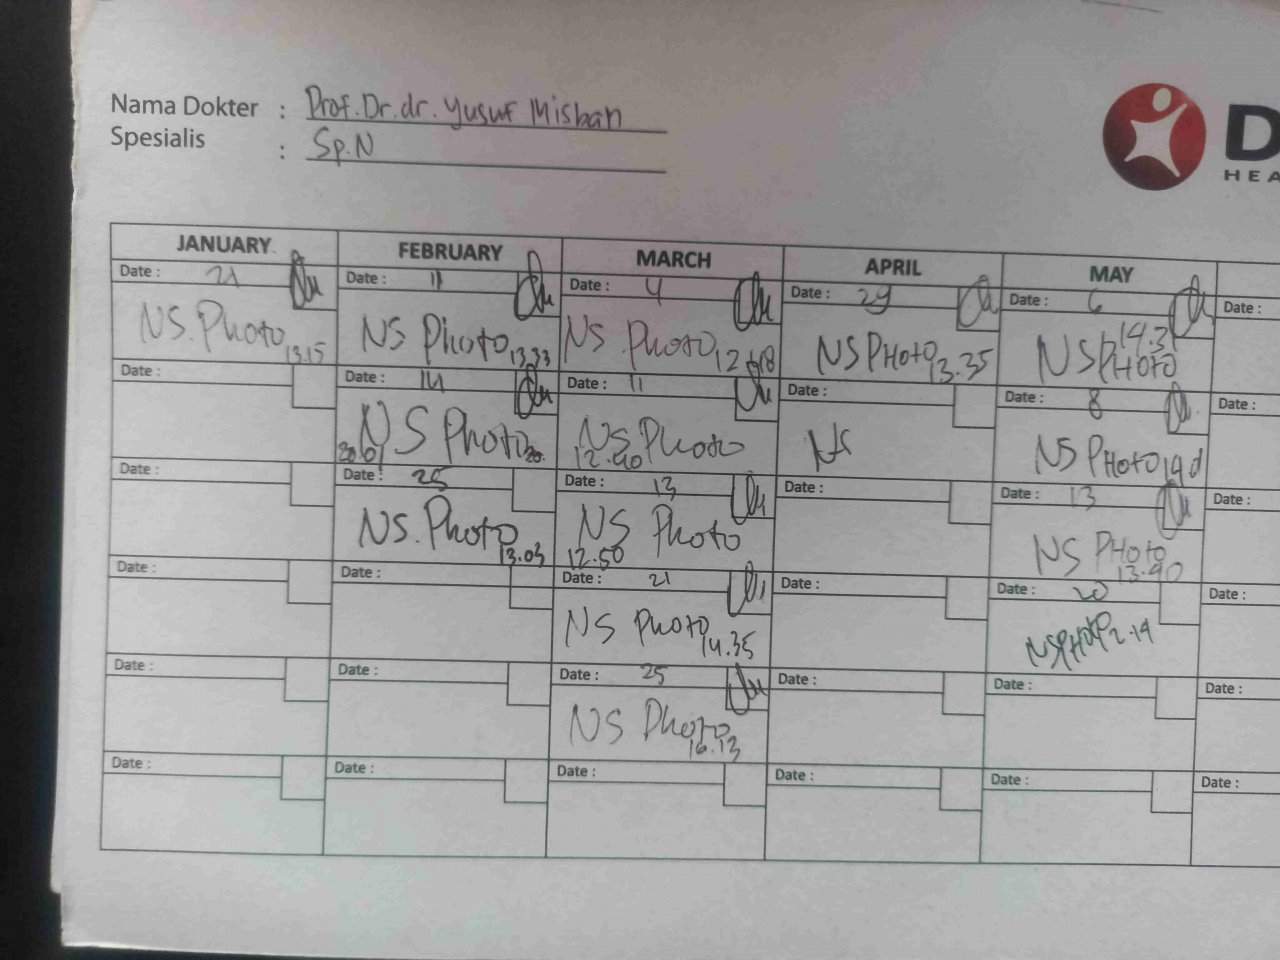 Nama Dokter : Prof. Dr. dr. Yusuf Misban
Spesialis : Sp.N
D
HEA
JANUARY FEBRUARY MARCH APRIL MAY
Date : 21 Date : 11 Date : 4 Date : 29 Date : 6 Date :
NS. Photo 13.15 NS Photo 13.33 NS. Photo NS PHoto 13.35 NS PHoto 14.31
Date : Date : 14 Date : 11 Date : Date : 8 Date :
NS Photo 20.01 NS Photo 12.40 NS NS PHoto
Date : Date : 25 Date : 13 Date : Date : 13 Date :
NS. Photo 13.03 NS Photo 12.50 NS PHoto 13.40
Date : Date : Date : 21 Date : Date : 20 Date :
NS Photo 14.35 NSPHOTO 2.14
Date : Date : Date : 25 Date : Date : Date :
NS Photo 16.13
Date : Date : Date : Date : Date : Date :